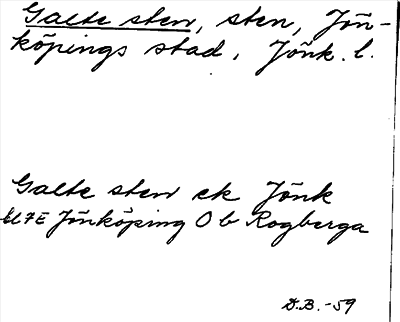 Galte sten, sten, Jön-
köpings stad, Jönk. l.
Galte sten ek Jönk
bl 7E Jönköping O b Rogberga
D.B. -59